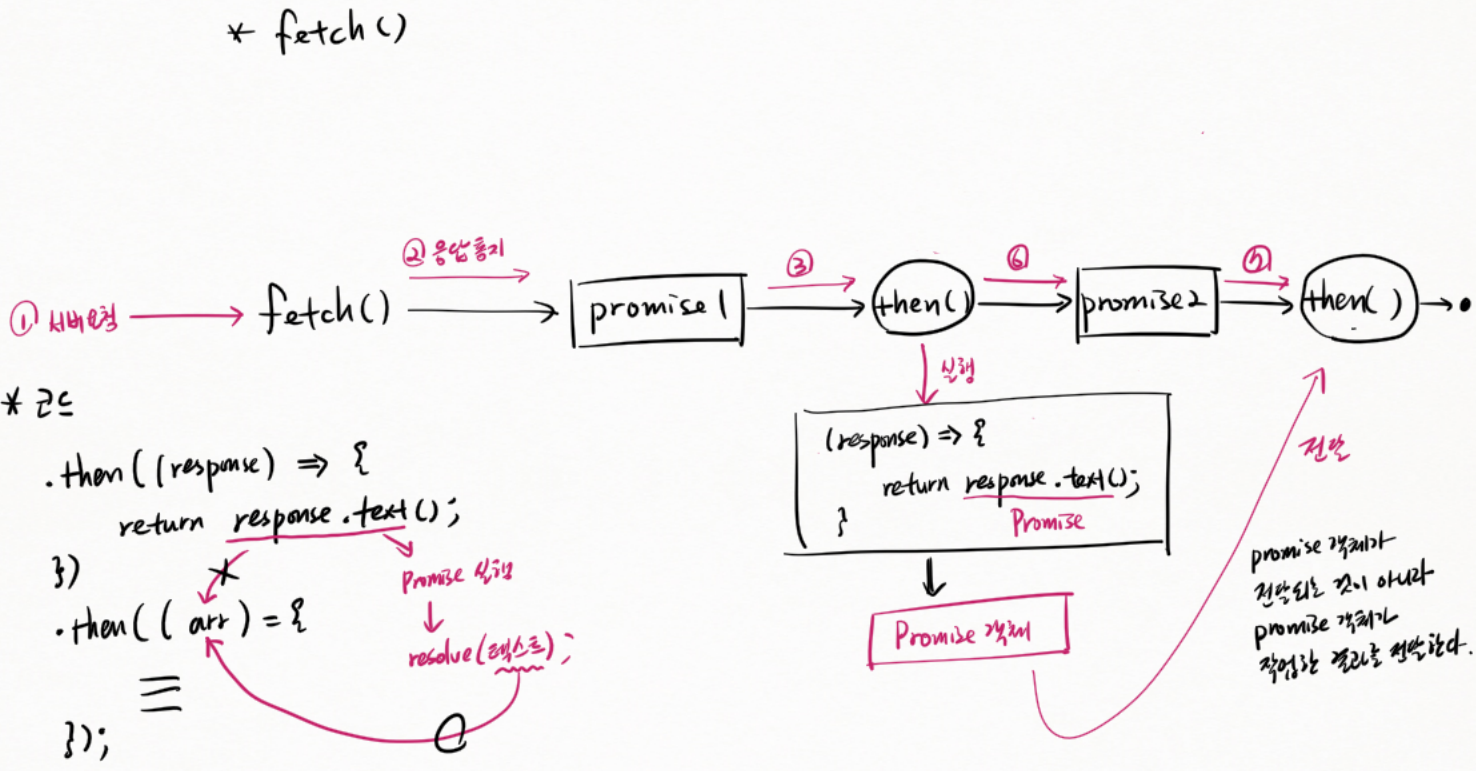 * fetch()
② 응답통지
① 서버요청
fetch()
promise1
③
then()
⑥
promise2
⑤
then( )
실행
* 코드
.then((response) => {
return response.text();
})
.then(( arr ) = {
});
Promise 실행
resolve(텍스트);
(response) => {
return response.text();
Promise
}
Promise 객체
전달
promise 객체가
전달되는 것이 아니라
promise 객체가
작업한 결과를 전달한다.